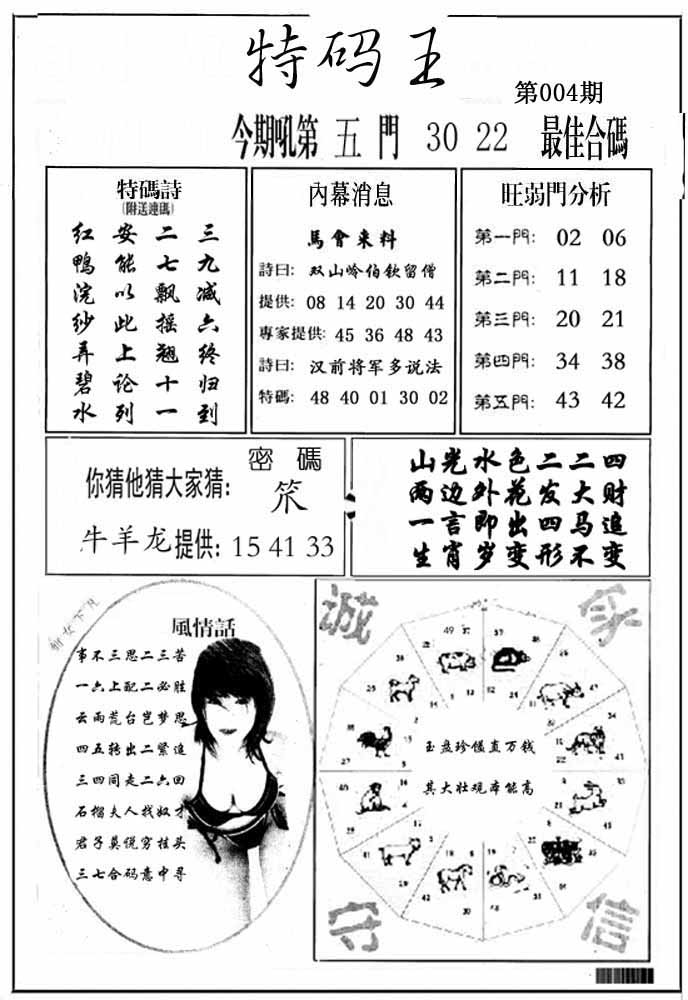 特码王
第004期
今期吼第 五 門 30 22 最佳合碼
特碼詩
(附送連碼)
红 安 二 三
鴨 能 七 九
浣 以 飘 减
纱 此 摇 六
弄 上 翘 终
碧 论 十 归
水 列 一 到
內幕消息
馬會来料
詩曰: 双山岭伯钦留僧
提供: 08 14 20 30 44
專家提供: 45 36 48 43
詩曰: 汉前将军多说法
特碼: 48 40 01 30 02
旺弱門分析
第一門: 02 06
第二門: 11 18
第三門: 20 21
第四門: 34 38
第五門: 43 42
密碼
你猜他猜大家猜:
牛羊龙提供: 15 41 33
山光水色二二四
两边外花发大财
一言即出四马追
生肖岁变形不变
仙女下凡
風情話
事不三思二三苦
一六上配二必胜
云雨荒台岂梦思
四五转出二紧追
三四同走二六回
石榴夫人找奴才
君子莫说穷挂头
三七合码意中寻
誠
守
信
玉盘珍馐直万钱
其大壮观本能高